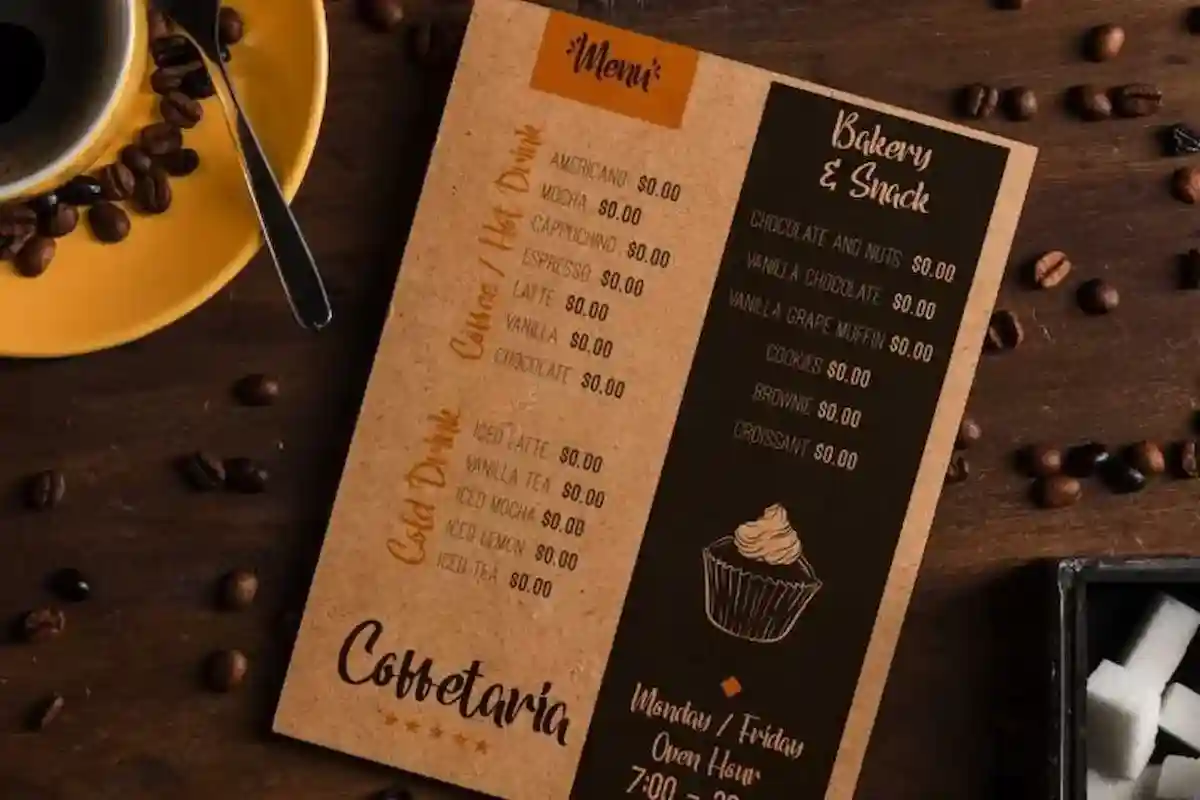 Menu
Coffee / Hot Drink
AMERICANO $0.00
MOCHA $0.00
CAPPUCHINO $0.00
ESPRESSO $0.00
LATTE $0.00
VANILLA $0.00
CHOCOLATE $0.00
Cold Drink
ICED LATTE $0.00
VANILLA TEA $0.00
ICED MOCHA $0.00
ICED LEMON $0.00
ICED TEA $0.00
Coffetaria
Bakery
& Snack
CHOCOLATE AND NUTS $0.00
VANILLA CHOCOLATE $0.00
VANILLA GRAPE MUFFIN $0.00
COOKIES $0.00
BROWNIE $0.00
CROISSANT $0.00
Monday / Friday
Open Hour
7:00 -